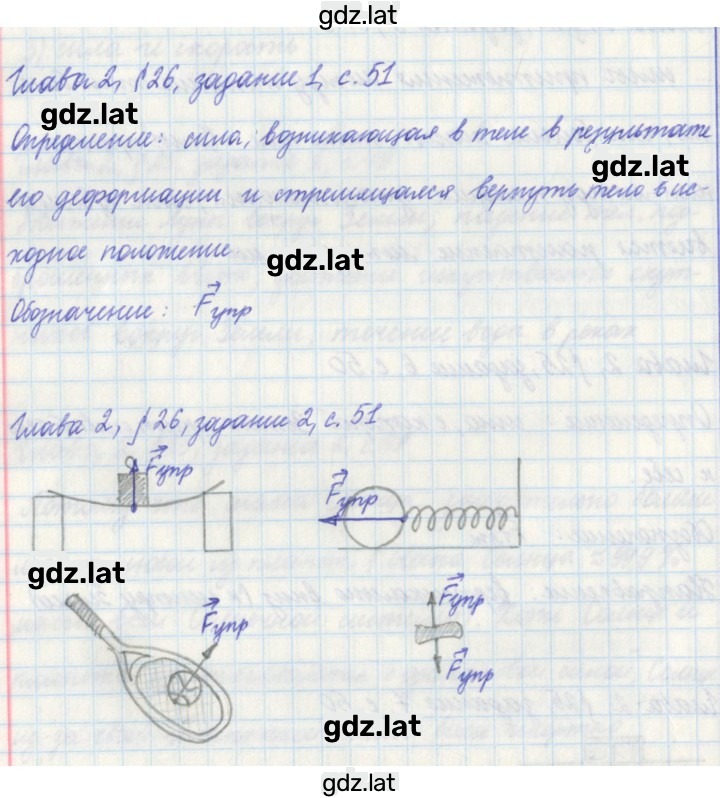 gdz.lat
Глава 2, §26, задание 1, с. 51
gdz.lat
Определение: сила, возникающая в теле в результате
gdz.lat
его деформации и стремящаяся вернуть тело в ис-
ходное положение
gdz.lat
Обозначение: Fупр
Глава 2, §26, задание 2, с. 51
Fупр
Fупр
gdz.lat
Fупр
Fупр
Fупр
gdz.lat
gdz.lat